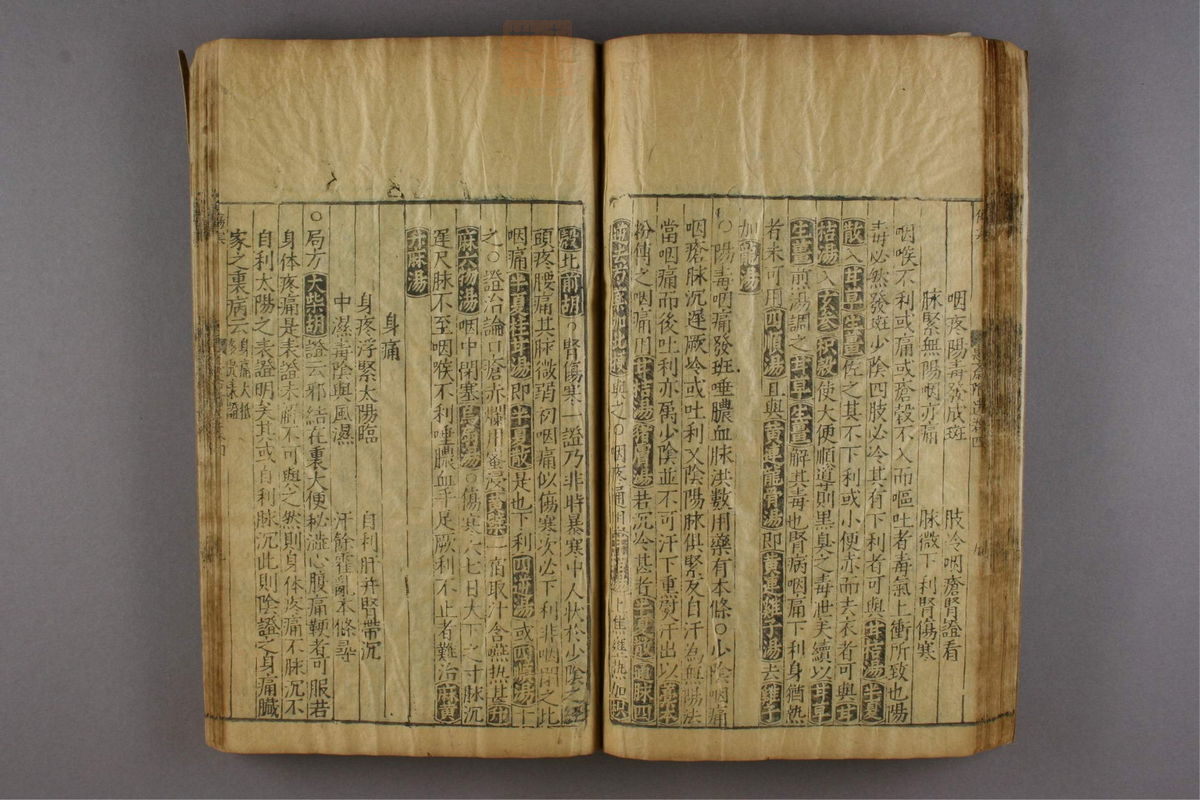 咽疼陽毒發成斑　肢冷咽瘡腎證看
脉緊無陽咽亦痛　脉微下利腎傷寒
咽喉不利或痛或瘡縠不入而嘔吐者毒氣上衝所致也陽
毒必然發斑少陰四肢必冷其有下利者可與甘桔湯半夏
散入甘草生薑佐之其不下利或小便亦而去衣者可與甘
桔湯入玄參枳殼使大便順導則黑臭之毒泄矣續以甘草
生薑前湯調之甘草生薑解其毒也腎病咽痛下利身猶熱
者未可用四順湯且與黃連龍骨湯即黃連雞子湯去雞子
加龍湯
○陽毒咽痛發斑唾膿血脉洪數用藥有本條○少陰咽痛
咽瘡脉沉遲厥冷或吐利又陰陽脉俱緊反自汗為無陽法
當咽痛而後吐利亦屬少陰並不可汗下重䕃汗出以藁本
粉傅之咽痛用甘桔湯猪膚湯若沉冷甚者半夏散通脉四
逆去芍藥加桔梗與之○咽疼通用上焦壅熱加枳
殼北前胡○腎傷寒一證乃非時暴寒中人伏於少陰之經
頭疼腰痛其脉微弱初咽痛似傷寒次必下利非咽胃之比
咽痛半夏桂甘湯即半夏散是也下利四逆湯或四順湯主
之○證治論口瘡赤爛用蜜浸黃蘗一宿取汁含嚥熱甚升
麻六物湯咽中閉塞烏翣湯○傷寒六七日大下之寸脉沉
遲尺脉不至咽喉不利唾膿血手足厥利不止者難治麻黃
升麻湯
身痛
身疼浮緊太陽臨　自利肝幷腎帶沉
中濕毒陰與風濕　汗餘霍亂本條尋
○局方大柴胡證云邪結在裏大便秘澁心腹痛鞕者可服若
身体疼痛是表證未解不可與之然則身体疼痛不脉沉不
自利太陽之表證明矣其或自利脉沉此則陰證之身痛臟
家之裏病云身痛大抵